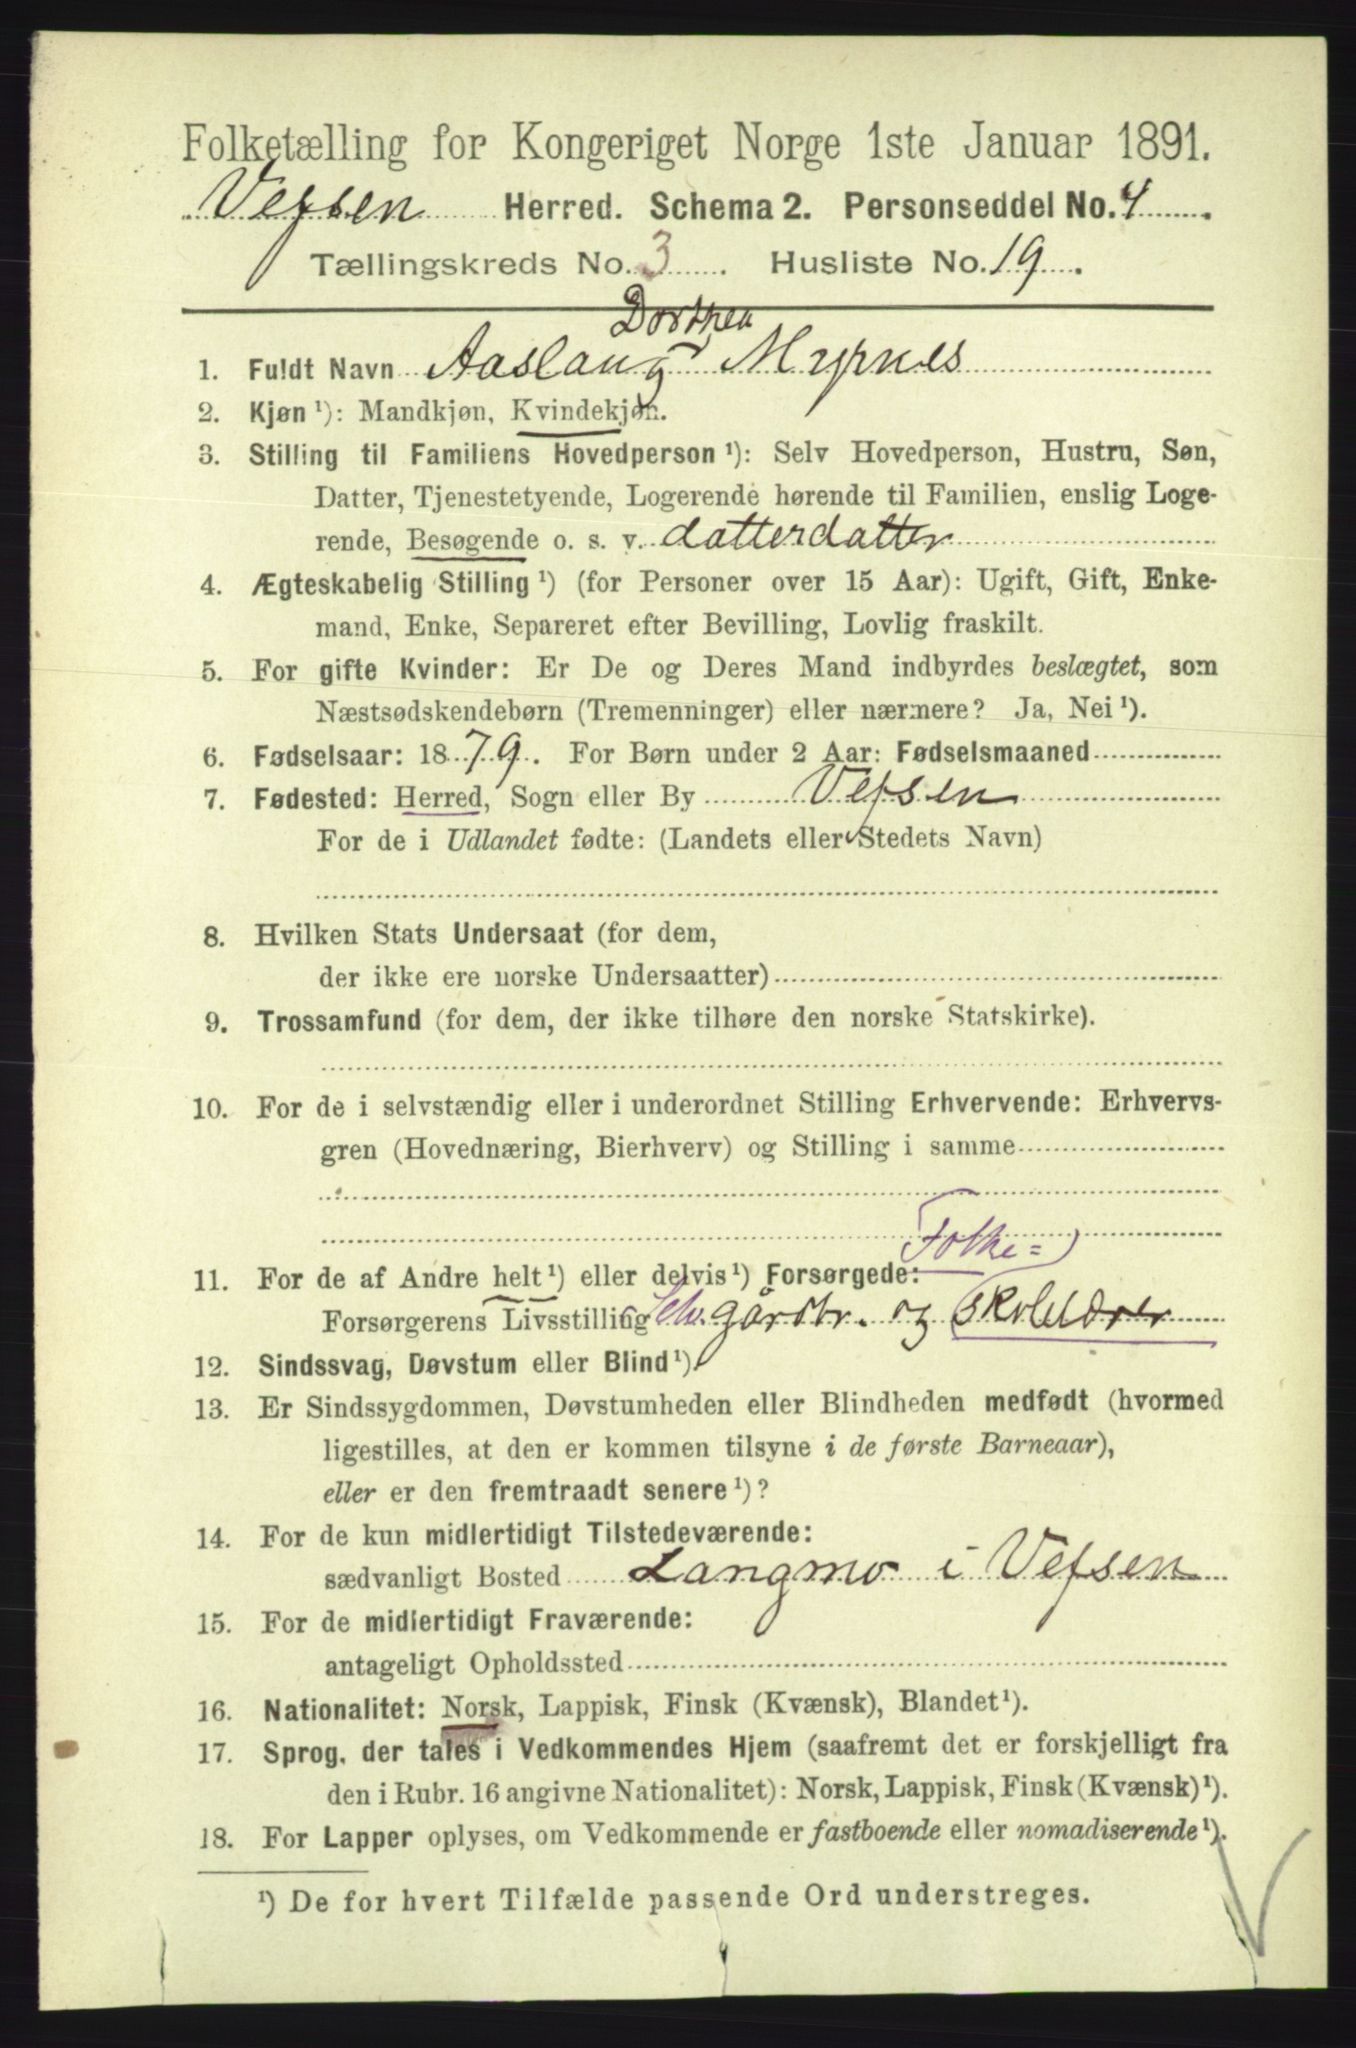 Folketælling for Kongeriget Norge 1ste Januar 1891.
Vefsen Herred. Schema 2. Personseddel No. 4
Tællingskreds No. 3. Husliste No. 19.
Dorthea
1. Fuldt Navn Aaslaug Myrnes
2. Kjøn ¹): Mandkjøn, Kvindekjøn.
3. Stilling til Familiens Hovedperson ¹): Selv Hovedperson, Hustru, Søn,
Datter, Tjenestetyende, Logerende hørende til Familien, enslig Loge-
rende, Besøgende o. s. v. datterdatter
4. Ægteskabelig Stilling ¹) (for Personer over 15 Aar): Ugift, Gift, Enke-
mand, Enke, Separeret efter Bevilling, Lovlig fraskilt.
5. For gifte Kvinder: Er De og Deres Mand indbyrdes beslægtet, som
Næstsødskendebørn (Tremenninger) eller nærmere? Ja, Nei ¹).
6. Fødselsaar: 1879. For Børn under 2 Aar: Fødselsmaaned
7. Fødested: Herred, Sogn eller By Vefsen
For de i Udlandet fødte: (Landets eller Stedets Navn)
8. Hvilken Stats Undersaat (for dem,
der ikke ere norske Undersaatter)
9. Trossamfund (for dem, der ikke tilhøre den norske Statskirke).
10. For de i selvstændig eller i underordnet Stilling Erhvervende: Erhvervs-
gren (Hovednæring, Bierhverv) og Stilling i samme
Folke=
11. For de af Andre helt ¹) eller delvis ¹) Forsørgede:
Forsørgerens Livsstilling Selv. gårdbr. og skolelærer
12. Sindssvag, Døvstum eller Blind ¹).
13. Er Sindssygdommen, Døvstumheden eller Blindheden medfødt (hvormed
ligestilles, at den er kommen tilsyne i de første Barneaar),
eller er den fremtraadt senere ¹)?
14. For de kun midlertidigt Tilstedeværende:
sædvanligt Bosted Langmo i Vefsen
15. For de midlertidigt Fraværende:
antageligt Opholdssted
16. Nationalitet: Norsk, Lappisk, Finsk (Kvænsk), Blandet ¹).
17. Sprog, der tales i Vedkommendes Hjem (saafremt det er forskjelligt fra
den i Rubr. 16 angivne Nationalitet): Norsk, Lappisk, Finsk (Kvænsk) ¹).
18. For Lapper oplyses, om Vedkommende er fastboende eller nomadiserende ¹).
¹) De for hvert Tilfælde passende Ord understreges.